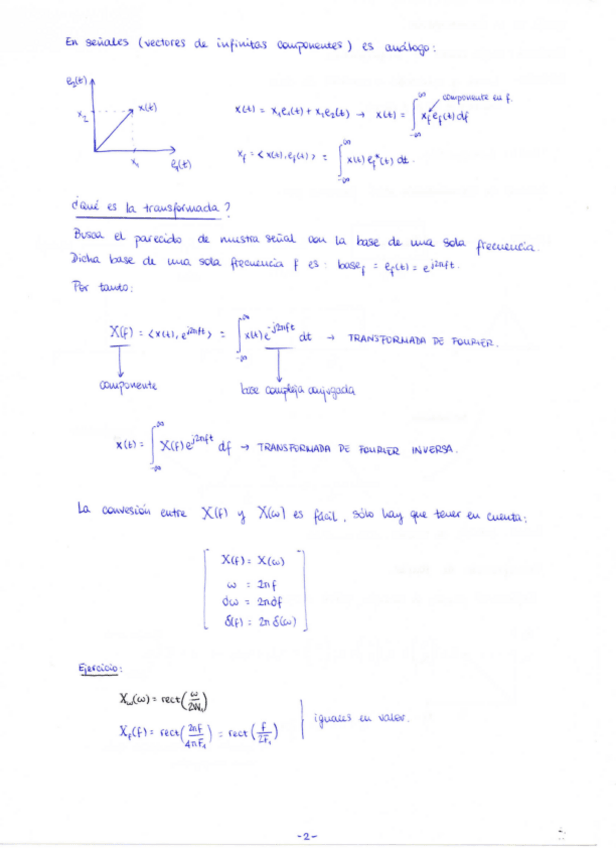 En señales (vectores de infinitas componentes) es análogo:
e₂(t)
x₂
x(t)
x₁
e₁(t)
x(t) = x₁e₁(t) + x₁e₂(t) → x(t) = ∫_{-∞}^{∞} x_f e_f(t) df
componente en f.
x_f = <x(t), e_f(t)> = ∫_{-∞}^{∞} x(t) e_f*(t) dt.
¿Qué es la transformada?
Busca el parecido de nuestra señal con la base de una sola frecuencia.
Dicha base de una sola frecuencia f es: base_f = e_f(t) = e^{j2πft}.
Por tanto:
X(f) = <x(t), e^{j2πft}> = ∫_{-∞}^{∞} x(t) e^{-j2πft} dt → TRANSFORMADA DE FOURIER.
componente
base compleja conjugada
x(t) = ∫_{-∞}^{∞} X(f) e^{j2πft} df → TRANSFORMADA DE FOURIER INVERSA.
La convesión entre X(f) y X(ω) es fácil, sólo hay que tener en cuenta:
X(f) = X(ω)
ω = 2πf
dω = 2πdf
δ(f) = 2π δ(ω)
Ejercicio:
X_ω(ω) = rect(ω/2W₁)
X_f(f) = rect(2πf/4πF₁) = rect(f/2F₁)
iguales en valor.
-2-